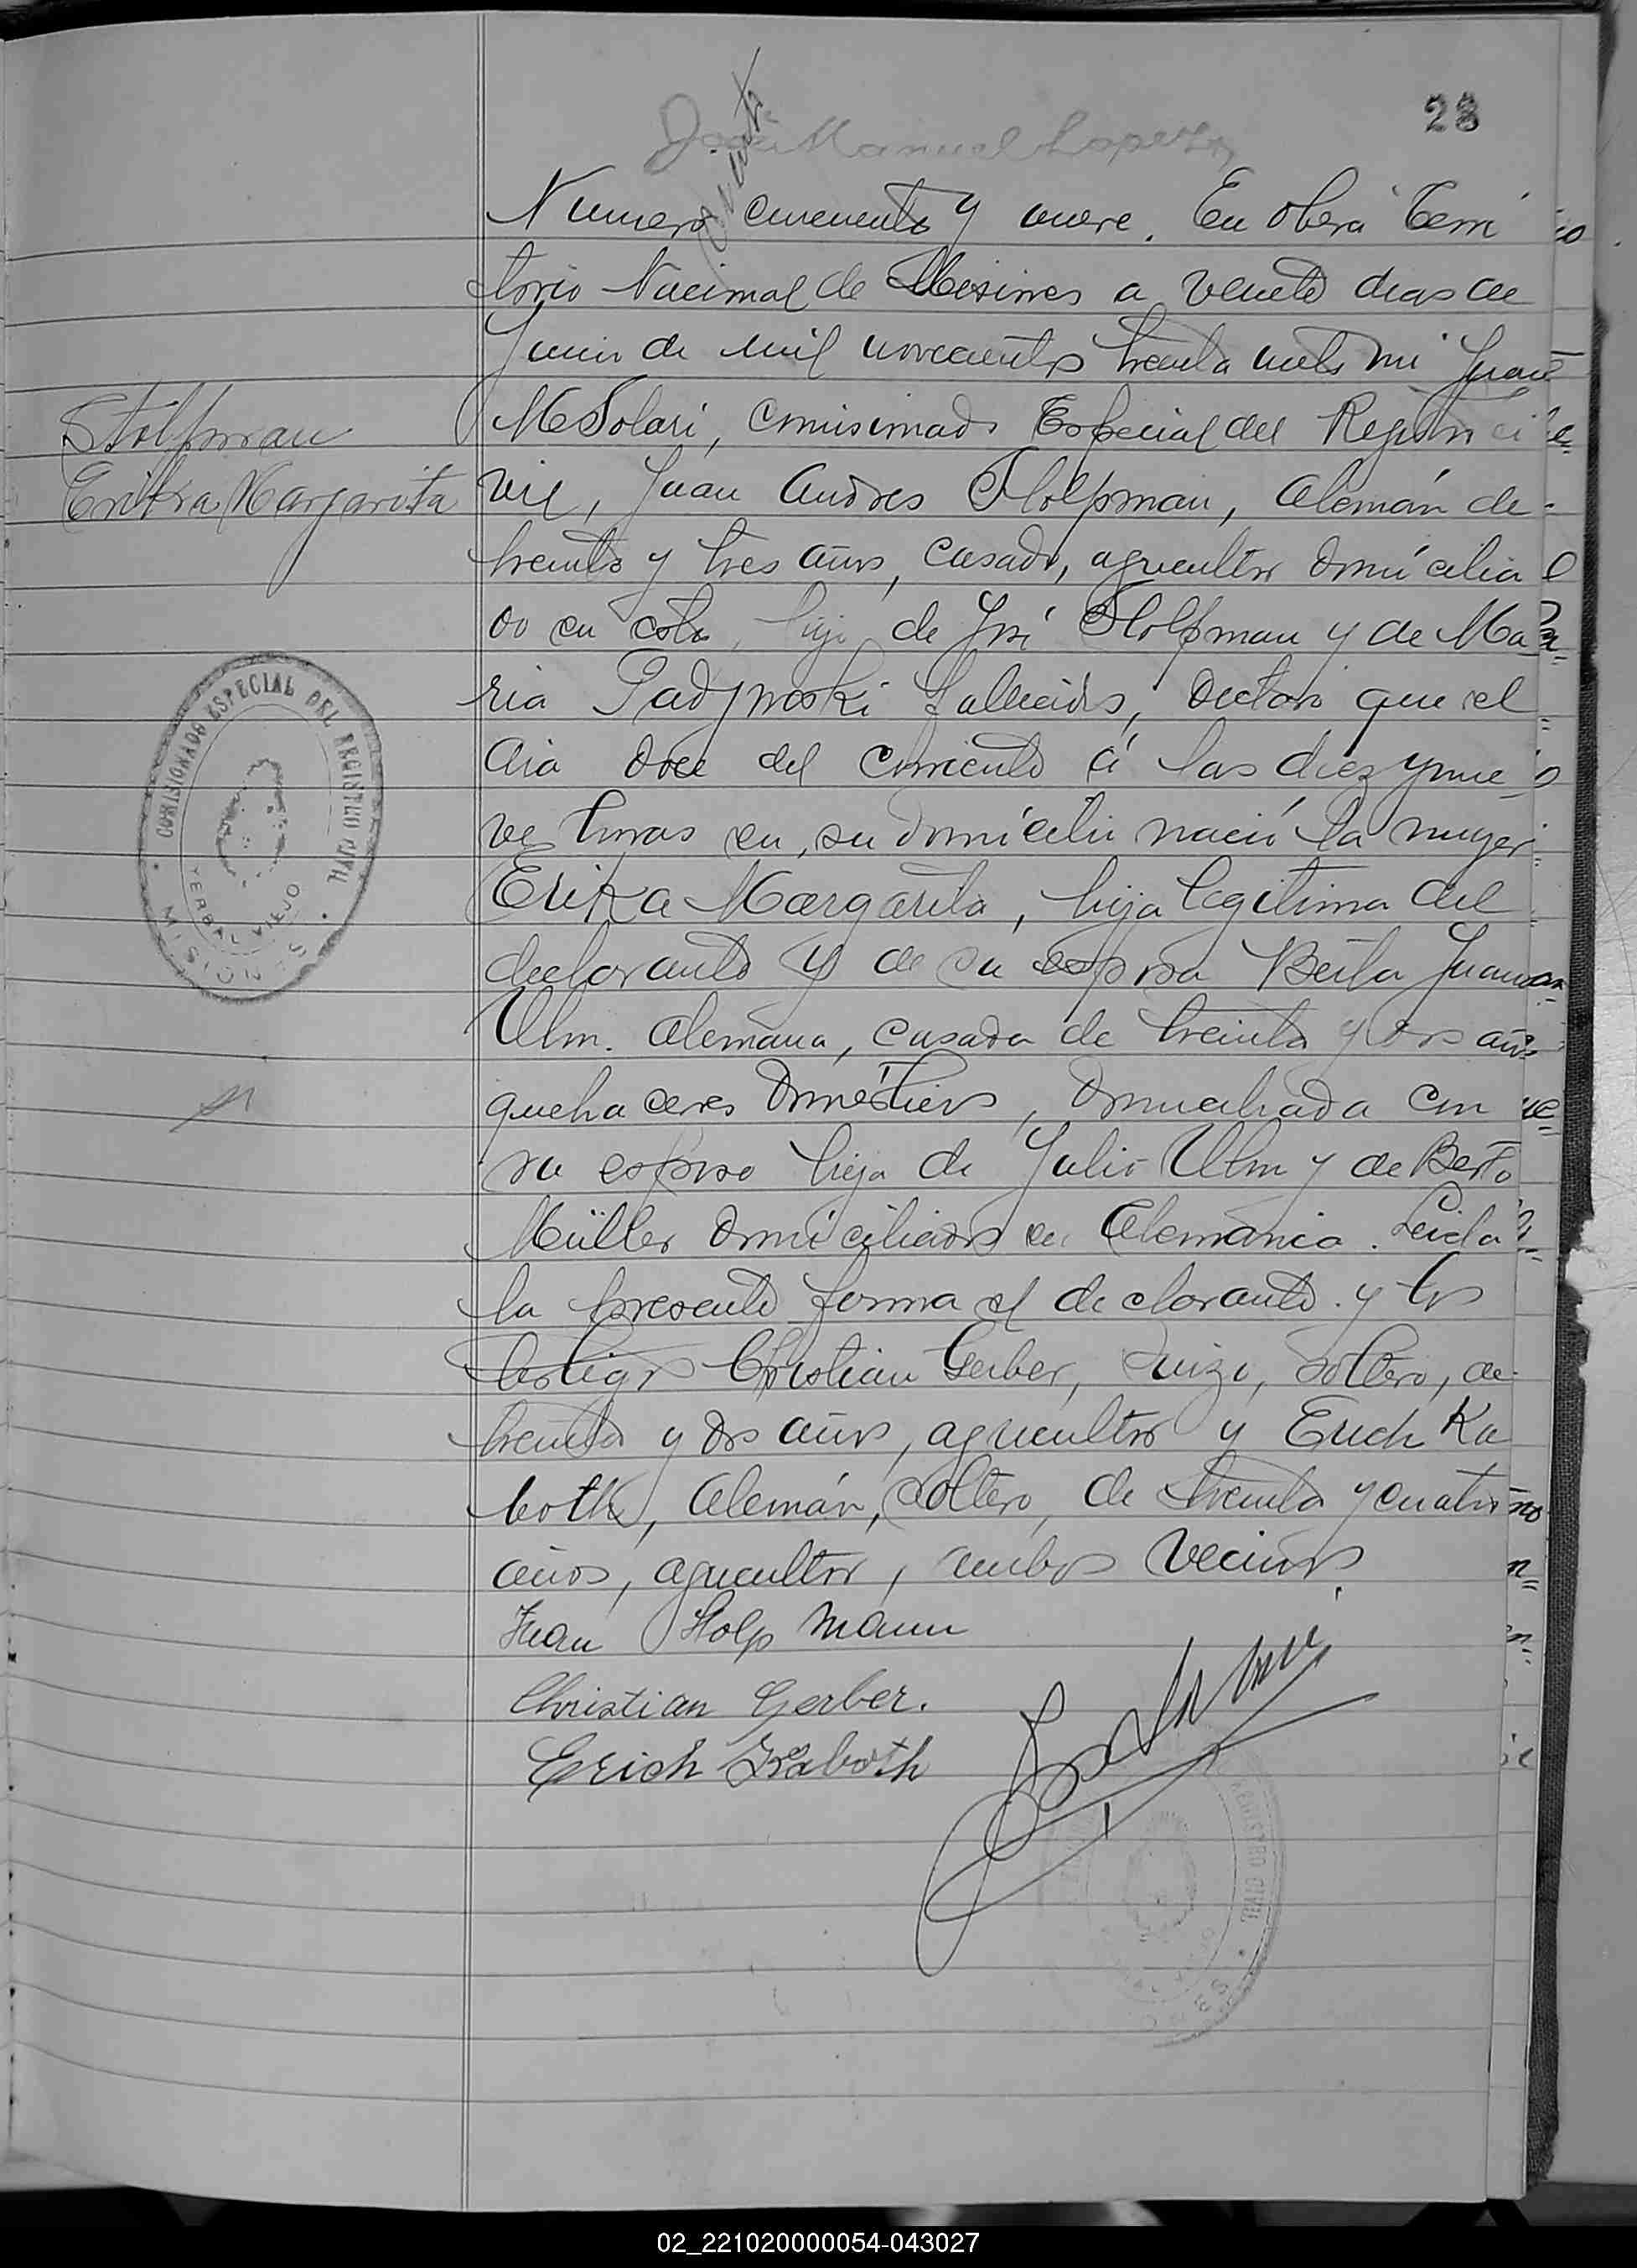 28
José Manuel Lopez
Numero cincuenta y nueve. En Oberá Terri
torio Nacional de Misiones a veinte dias de
Junio de mil novecientos treinta ante mi Juan
M Solari, Comisionado Especial del Registro Ci
vil, Juan Andres Stolpman, Alemán de
treinta y tres años, casado, agricultor domicilia
do en esta, hijo de José Stolpman y de Ma
ria fallecidos, declaró que el
dia doce del corriente á las diez y nue
ve horas en su domicilio nació la mujer
Erika Margarita, hija legitima del
declarante y de su esposa Berta Juana
Ulm. Alemana, casada de treinta y dos años
quehaceres domésticos, domiciliada con
su esposo hija de Julio Ulm y de Berta
Müller domiciliados en Alemania. Leida
la presente firma el declarante y los
testigos Christian Gerber, Suizo, soltero, de
treinta y dos años, agricultor y Erich Ka
both, Alemán, soltero, de treinta y cuatro
años, agricultor, ambos vecinos.
Stolpman
Erika Margarita
COMISIONADO ESPECIAL DEL REGISTRO CIVIL
YERBAL VIEJO
MISIONES
Juan Stolpmann
Christian Gerber.
Erich Kaboth
REGISTRO CIVIL
02_221020000054-043027